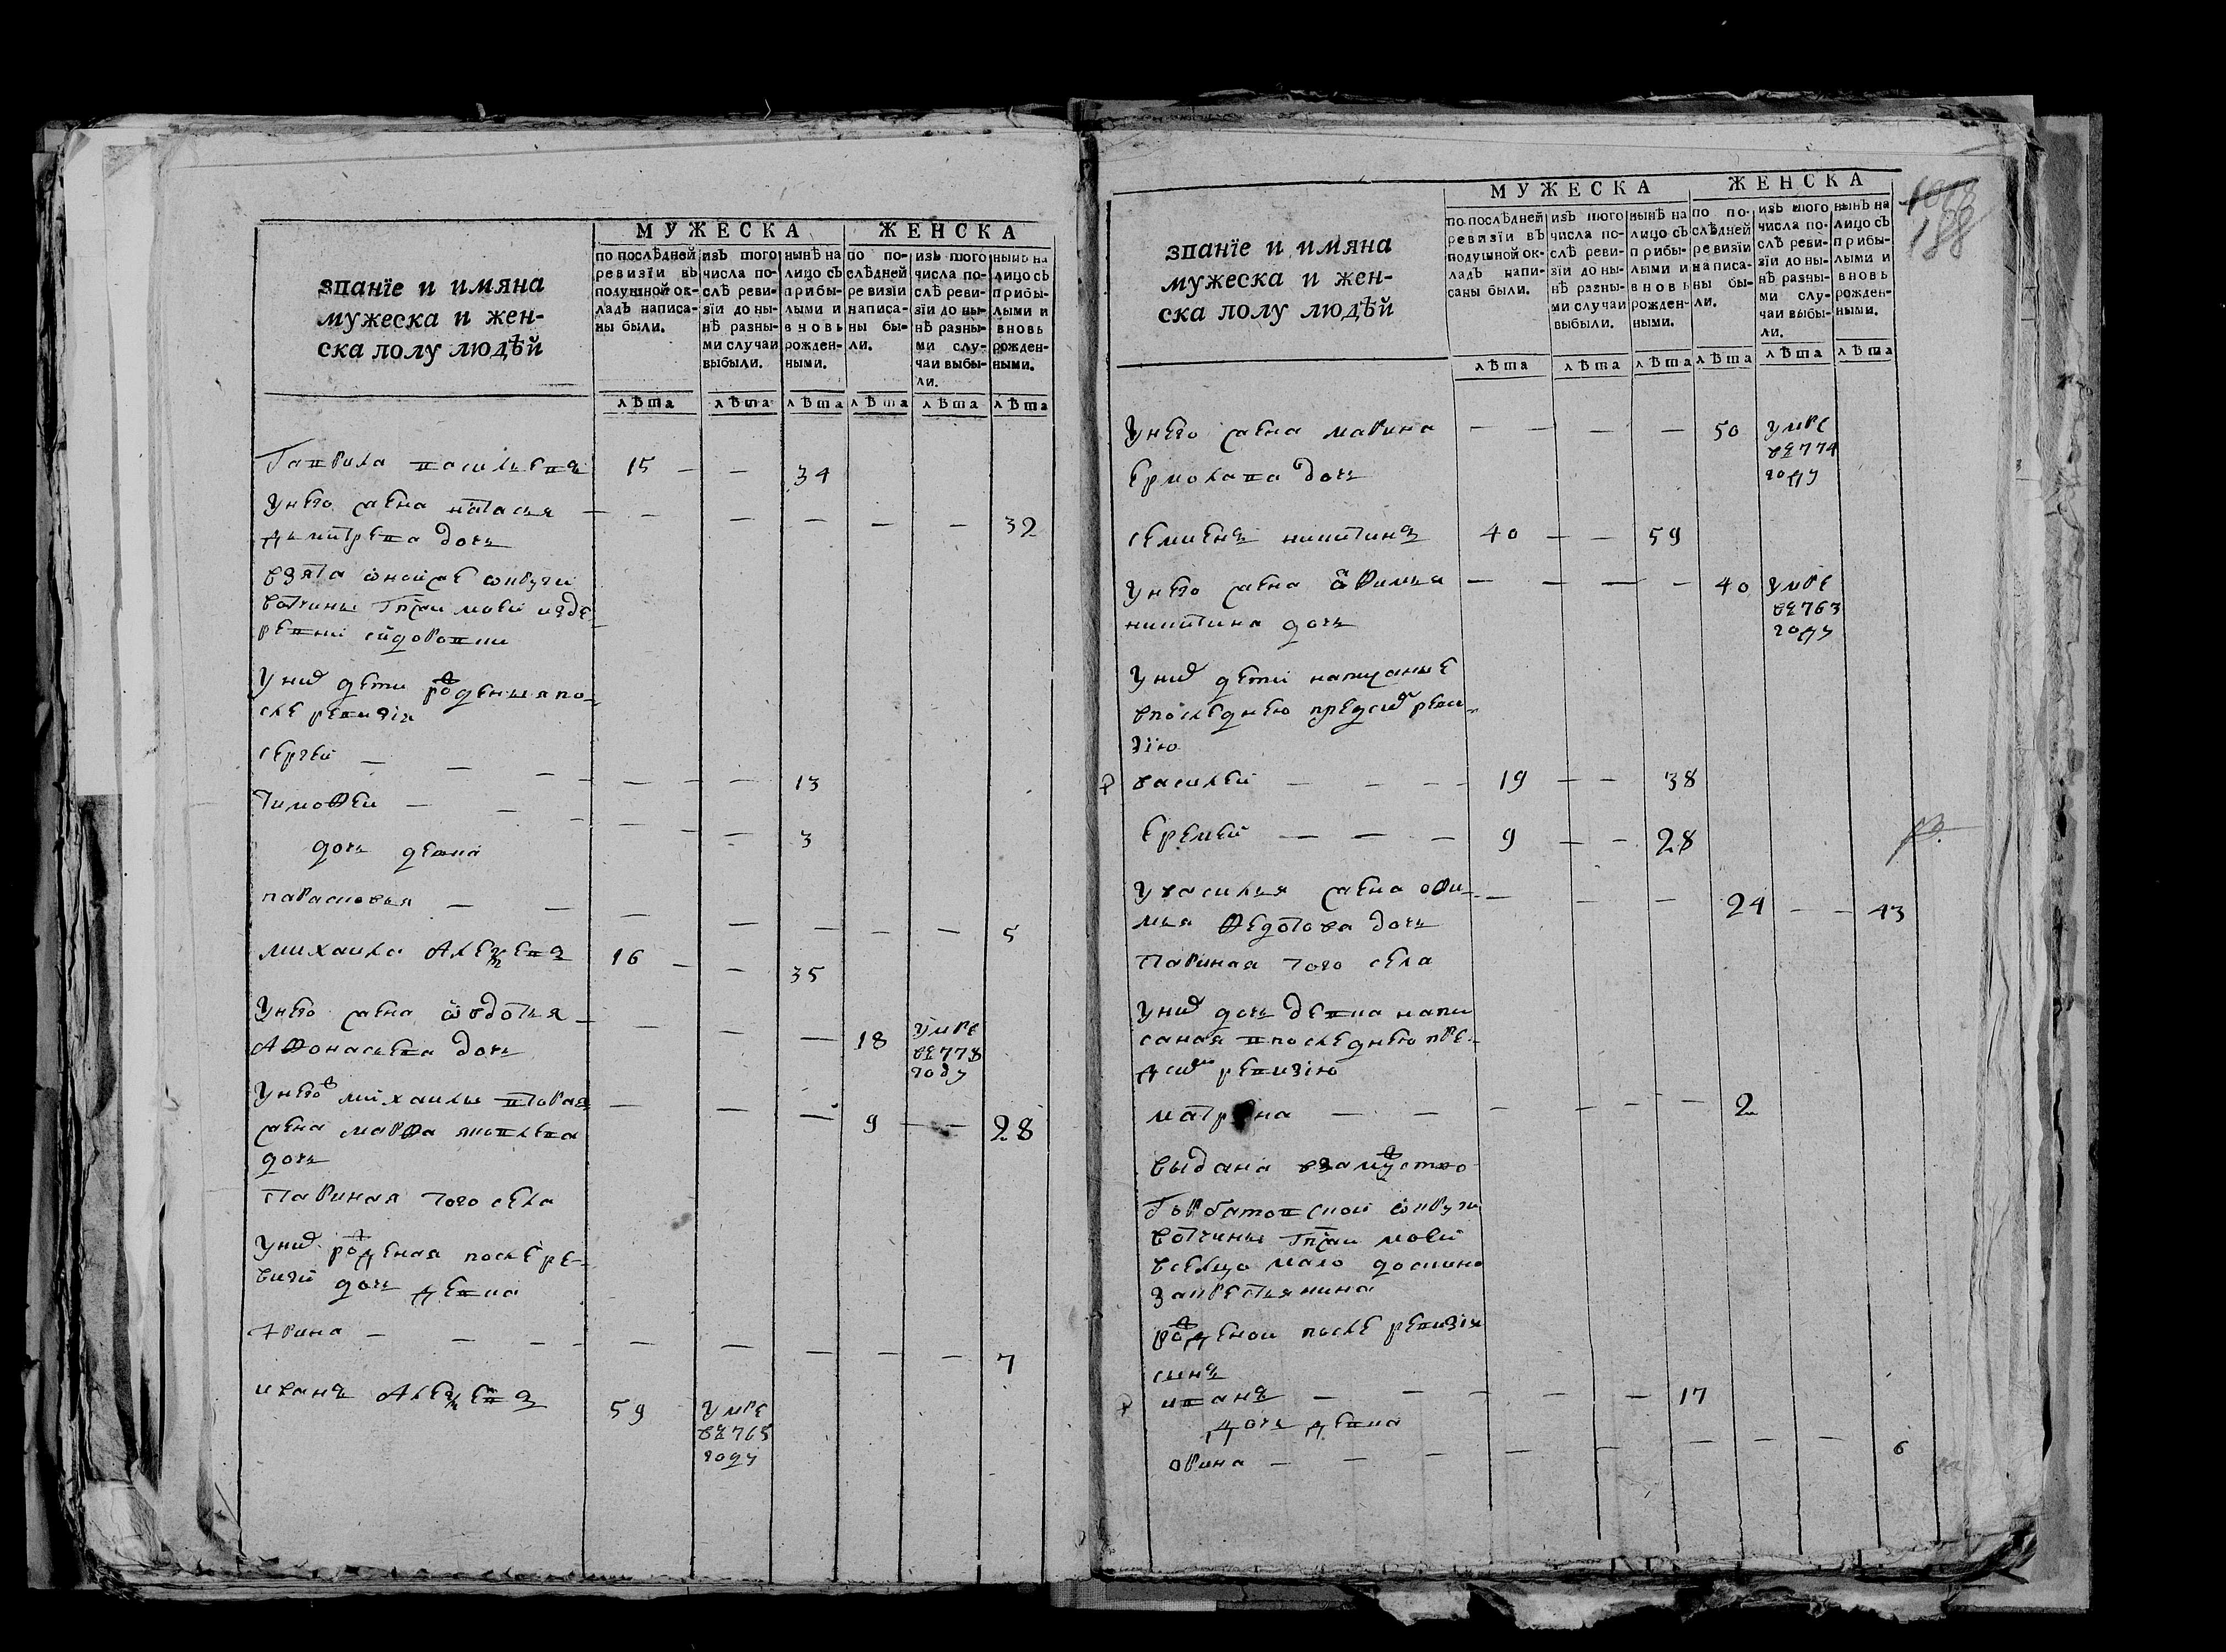 званїе и имяна
мужеска и жен-
ска полу людѣй
МУЖЕСКА
ЖЕНСКА
по послѣдней ревизїи въ подушной ок-ладъ написа-ны были.
изъ того числа по-слѣ реви-зїи до ны-нѣ разны-ми случаи выбыли.
нынѣ на лицо съ прибы-лыми и вновь рожден-ными.
по по-слѣдней ревизїи написа-ны бы-ли.
изъ того числа по-слѣ реви-зїи до ны-нѣ разны-ми слу-чаи выбы-ли.
нынѣ на лицо съ прибы-лыми и вновь рожден-ными.
лѣта лѣта лѣта лѣта лѣта лѣта
Гаврила васильевъ 15 — — 34
У него жена наталья — — — — — — 32
дмитрева дочь
взята оной же округи
вотчины
ревни сидоровки
У них дети рожденыя по-
сле ревизiи
сергей — — — — — — 13
тимофеи — — — — — — 3
дочь девка
парасковья — — — — — — — — 5
михаила Алексеевъ 16 — — 35
У него жена овдотья — — — — 18 умре
Афонасьева дочь въ 778
году
У него михаилы вторая — — — 9 — — 28
жена марфа яковлева
дочь
старинная того села
У них рожденая после ре-
визiи дочь девка
Арина — — — — — — — — — 7
иванъ Алексеевъ 59 умре
въ 765
году
188
званїе и имяна
мужеска и жен-
ска полу людѣй
МУЖЕСКА
ЖЕНСКА
по послѣдней ревизїи въ подушной ок-ладъ напи-саны были.
изъ того числа по-слѣ реви-зїи до ны-нѣ разны-ми случаи выбыли.
нынѣ на лицо съ прибы-лыми и вновь рожден-ными.
по по-слѣдней ревизїи написа-ны бы-ли.
изъ того числа по-слѣ реви-зїи до ны-нѣ разны-ми слу-чаи выбы-ли.
нынѣ на лицо съ прибы-лыми и вновь рожден-ными.
лѣта лѣта лѣта лѣта лѣта лѣта
У него жена марина — — — — 50 умре
ермолава дочь въ 774
году
семенъ никитинъ 40 — — 59
У него жена офимья — — — — 40 умре
никитина дочь въ 763
году
У них дети написаные
в последнею пред сим реви-
зiю
василей — — — 19 — — 38
еремей — — — 9 — — 28
У василья жена офи- — — — 24 — — 43
мья федотова дочь
старинная того села
У них дочь девка напи
саная в последнею пре-
д сим ревизiю
матрена — — — — — — 2
выдана в замужство
Горбатовской округи
вотчины
в сельцо
за крестьянина
рожденои после ревизiи
сынъ
иванъ — — — — — 17
дочь девка
орина — — — — — — — 6